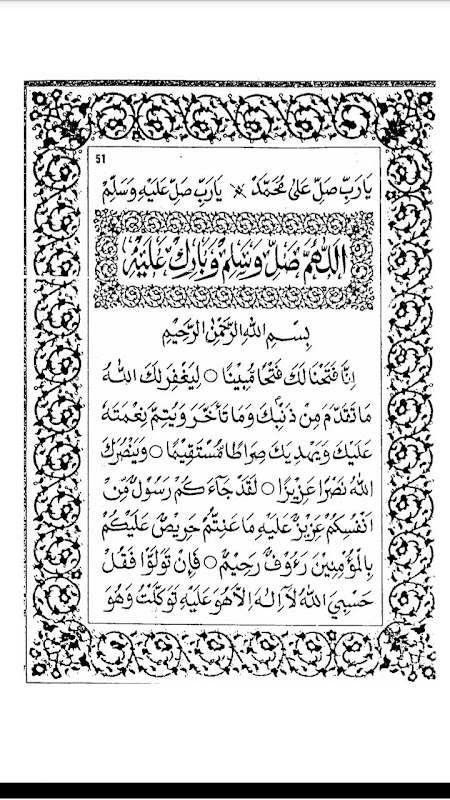 51
يَارَبِّ صَلِّ عَلىٰ مُحَمَّدْ * يَارَبِّ صَلِّ عَلَيْهِ وَسَلِّمْ
اَللّٰهُمَّ صَلِّ وَسَلِّمْ وَبَارِكْ عَلَيْهْ
بِسْمِ اللهِ الرَّحْمٰنِ الرَّحِيْمِ
اِنَّا فَتَحْنَا لَكَ فَتْحًا مُّبِيْنًا ○ لِيَغْفِرَ لَكَ اللهُ
مَا تَقَدَّمَ مِنْ ذَنْبِكَ وَمَا تَأَخَّرَ وَيُتِمَّ نِعْمَتَهُ
عَلَيْكَ وَيَهْدِيَكَ صِرَاطًا مُّسْتَقِيْمًا ○ وَيَنْصُرَكَ
اللهُ نَصْرًا عَزِيْزًا ○ لَقَدْ جَاءَكُمْ رَسُوْلٌ مِّنْ
اَنْفُسِكُمْ عَزِيْزٌ عَلَيْهِ مَا عَنِتُّمْ حَرِيْصٌ عَلَيْكُمْ
بِالْمُؤْمِنِيْنَ رَءُوْفٌ رَحِيْمٌ ○ فَاِنْ تَوَلَّوْا فَقُلْ
حَسْبِيَ اللهُ لَآ اِلٰهَ اِلَّا هُوَ عَلَيْهِ تَوَكَّلْتُ وَهُوَ